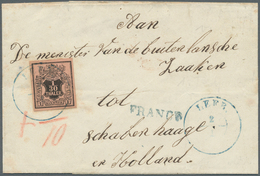 Aan
De menister van de buitenlansche
Zaaken
tot
Schabenhaage
en Holland.
FRANCO
LEER
1/30
THALER
10